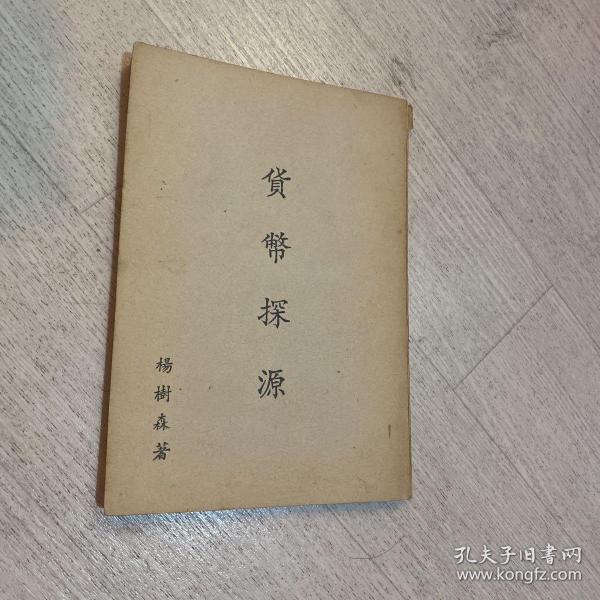 貨幣探源
楊樹森著
孔夫子旧書网
www.kongfz.com